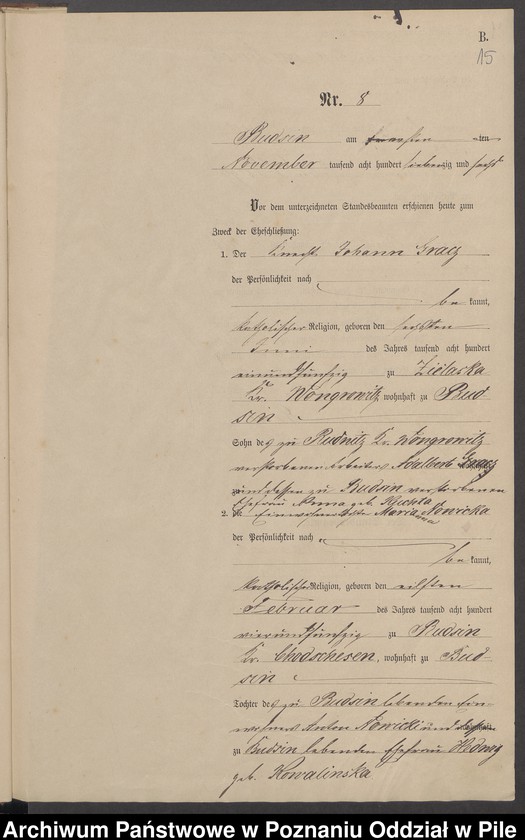 B.
15
Nr. 8
Budsin am ten
November tausend acht hundert siebenzig und sechs
Vor dem unterzeichneten Standesbeamten erschienen heute zum
Zweck der Eheschließung:
1. Der Knecht Johann Gracz
der Persönlichkeit nach
be kannt,
katholischer Religion, geboren den sechsten
Juni des Jahres tausend acht hundert
einundfünfzig zu
Kr. Wongrowitz, wohnhaft zu Bud
sin
Sohn des zu Rudnitz Kr. Wongrowitz
verstorbenen Arbeiters Adalbert Gracz
und dessen zu Budsin verstorbenen
Ehefrau Anna geb.
2. Die Maria Nowicka
der Persönlichkeit nach
be kannt,
katholischer Religion, geboren den eilften
Februar des Jahres tausend acht hundert
vierundfünfzig zu Budsin
Kr. Chodschesen, wohnhaft zu Bud-
sin
Tochter des zu Budsin lebenden Ein-
wohners Anton Nowicki und
zu Budsin lebenden Ehefrau Hedwig
geb. Kowalinska
Archiwum Państwowe w Poznaniu Oddział w Pile